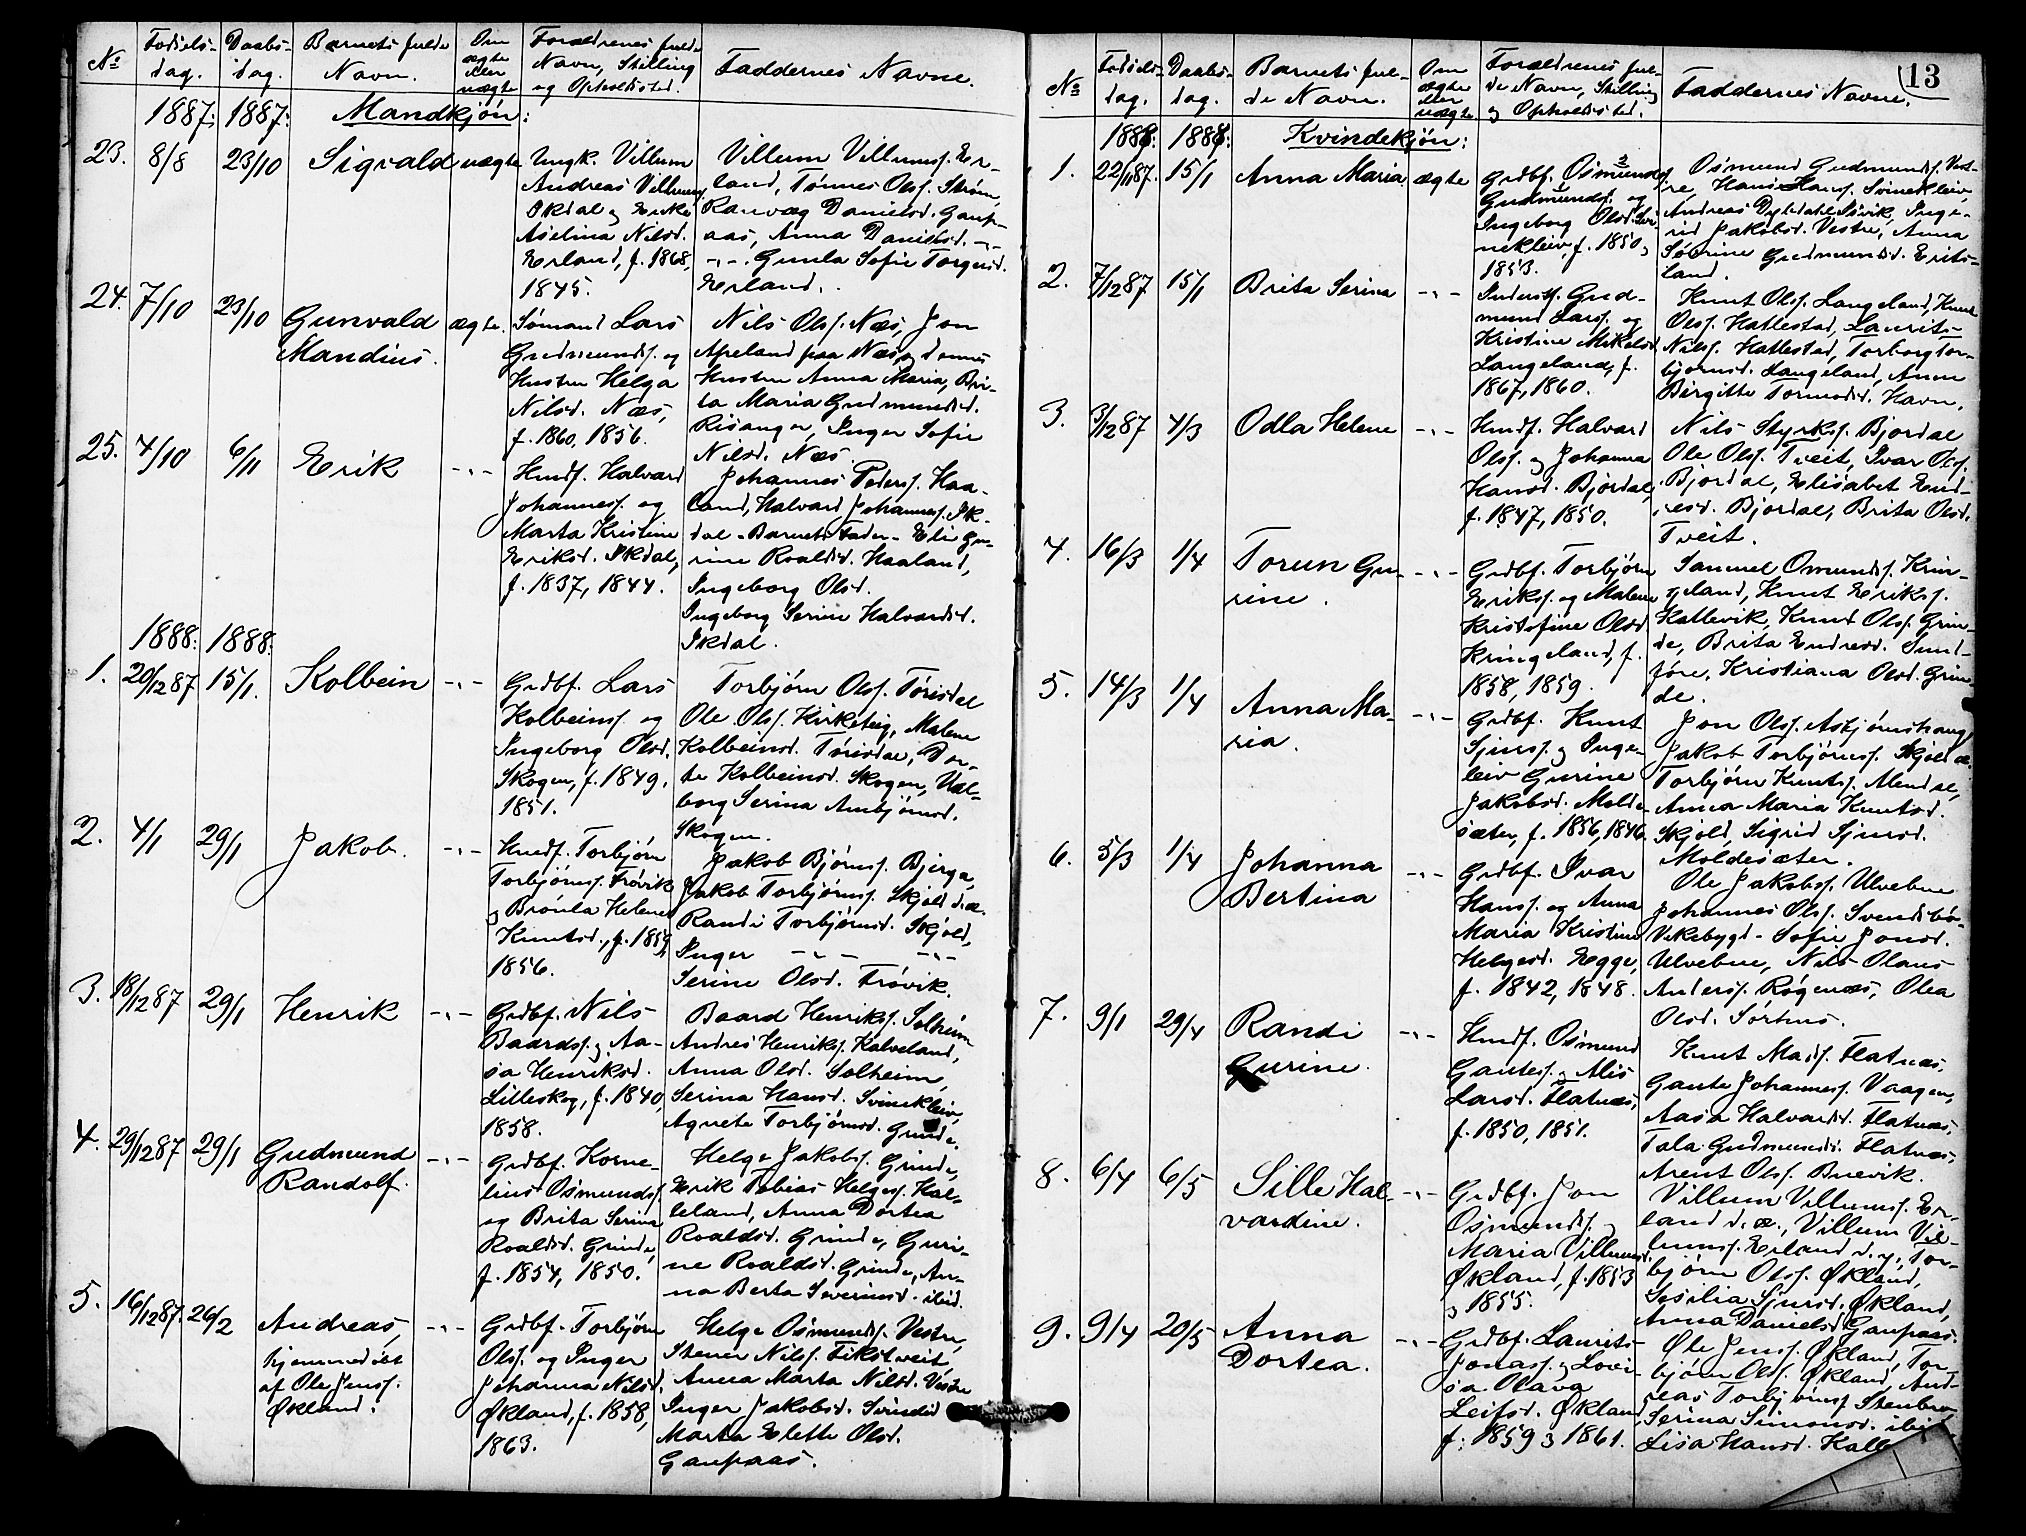 No Fødsels- dag. Daabs- dag. Barnets fulde Navn. Om ægte eller uægte Forældrenes fulde Navn, Stilling og Opholdsted. Faddernes Navne.
1887: 1887: Mandkjøn:
23. 8/8 23/10 Sigvald uægte
Ungk. Villum
Andreas Villumsf.
Ikdal og Enke
Aselina Nilsd.
Erland, f. 1868,
1845.
Villum Villumsf. Er-
land, Tønnes Olsf. Strøm,
Ranvæg Danielsd. Gaup-
aas, Anna Danielsd. -"-
-"- Gunla Sofie Torgersd.
Erland.
24. 7/10 23/10 Gunvald ægte.
Mandius.
Sømand Lars
Gudmundsf. og
Hustru Helga
Nilsd. Næs,
f. 1860, 1856.
Nils Olsf. Næs, Jon
Apeland paa Næs, og dennes
Hustru Anna Maria, Bri-
ta Maria Gudmundsd.
Risanger, Inger Sofie
Nilsd. Næs.
25. 4/10 6/11 Erik -"-
Husmf. Halvard
Johannesf. og
Marta Kristine
Eriksd. Ikdal,
f. 1837, 1844.
Johannes Pedersf. Haa-
land, Halvard Johannesf. Ik-
dal - Barnets Fader - Eli Gu-
rine Roaldsd. Haaland,
Ingeborg Olsd.
Ingeborg Serine Halvardsd.
Ikdal.
1888: 1888:
1. 20/12 87 15/1. Kolbein -"-
Grdbf. Lars
Kolbeinsf. og
Ingeborg Olsd.
Skogen, f. 1849,
1851.
Torbjørn Olsf. Tørisdal
Ole Olsf. Kirketeig, Malene
Kolbeinsd. Tørisdal, Dor-
te Kolbeinsd. Skogen, Val-
borg Serina Ambjørnsd.
Skogen.
2. 4/1 29/1 Jakob. -"-
Husmf. Torbjørn
Torbjørnsf. Frøvik
og Brønla Helene
Knutsd., f. 1859,
1856.
Jakob Bjørnsf. Bjerga,
Jakob Torbjørnsf. Skjold d.æ.
Randi Torbjørnsd. Skjold,
Inger -"- -"-
Serine Olsd. Frøvik.
3. 18/12 87 29/1 Henrik -"-
Grdbf. Nils
Baardsf. og Aa-
sa Henriksd.
Lilleskog, f. 1840,
1858.
Baard Henriksf. Solheim
Andres Henriksf. Kalveland,
Anna Olsd. Solheim,
Serina Hansd. Svinekleiv,
Agnete Torbjørnsd. Grinde.
4. 29/12 87 29/1 Gudmund -"-
Randolf.
Grdbf. Korne-
lius Osmundsf.
og Brita Serine
Roaldsd. Grinde,
f. 1854, 1850.
Helge Jakobsf. Grinde,
Erik Tobias Helgesf. Hal-
leland, Anna Dortea
Roaldsd. Grinde, Guri-
ne Roaldsd. Grinde, An-
na Berta Severinsd. ibid.
5. 16/12 87. 26/2 Andreas, -"-
hjemmedøbt
af Ole Jensf.
Økland.
Grdbf. Torbjørn
Olsf. og Inger
Johanna Nilsd.
Økland, f. 1858,
1863.
Helge Osmundsf. Vestre,
Stener Nilsf. Fikstveit,
Anna Marta Nilsd. Vestre
Inger Jakobsd.
Marta Elette Olsd.
Gaupaas.
13
No Fødsels- dag. Daabs- dag. Barnets ful- de Navn. Om ægte eller uægte Forældrenes ful- de Navn, Stilling og Opholdsted. Faddernes Navne.
1888: 1888: Kvindekjøn:
1. 22/11 87. 15/1 Anna Maria ægte
Grdbf. Osmund
Gudmundsf. og
Ingeborg Olsd. Svi-
nekleiv, f. 1850,
1853.
Osmund Gudmundsf. Vest-
re, Hans Hansf. Svinekleiv,
Andreas Isvik, Inge-
rid Jakobsd. Vestre, Anna
Søverine Gudmundsd. Erits-
land.
2. 7/12 87 15/1 Brita Serina -"-
Inderstf. Gud-
mund Larsf. og
Kristine Mikelsd.
Langeland, f.
1867, 1860.
Knut Olsf. Langeland, Knut
Olsf. Hattestad, Laurits
Nilsf. Hattestad, Torborg Tor-
bjørnsd. Langeland, Anne
Birgitte Tormodsd. Havn.
3. 3/12 87 4/3 Odla Helene -"-
Husmf. Halvard
Olsf. og Johanna
Hansd. Bjordal,
f. 1847, 1850.
Nils Styrksf. Bjordal
Ole Olsf. Tveit, Ivar Olsf.
Bjordal, Elisabet End-
resd. Bjordal, Brita Olsd.
Tveit.
4. 16/3 1/4 Torun Gu- -"-
rine.
Grdbf. Torbjørn
Eriksf. og Malene
Kristofine Olsd.
Kringeland, f.
1858, 1859.
Samuel Omundsf. Krin-
geland, Knut Eriksf.
Hattevik, Knud Olsf. Grin-
de, Brita Endresd. Sund-
føre, Kristiana Olsd. Grin-
de.
5. 14/3 1/4 Anna Ma- -"-
ria.
Grdbf. Knut
Sjursf. og Inge-
leiv Gurine
Jakobsd. Molde
sæter, f. 1856, 1846.
Jon Olsf. Asbjørnshaug,
Jakob Torbjørnsf. Skjold d.æ.
Torbjørn Knutsf. Alendal,
Anna Maria Knutsd.
Skjold, Sigrid Sjursd.
Moldesæter.
6. 5/3 1/4 Johanna -"-
Bertina
Grdbf. Ivar
Hansf. og Anna
Maria Kristine
Helgesd. Egge,
f. 1842, 1848.
Ole Jakobsf. Ulvebne
Johannes Olsf. Svendsbø-
Vikebygd - Sofie Jonsd.
Ulvebne, Nils Olaus
Andersf. Røgenæs, Olea
Olsd. Sørhus.
7. 9/1 29/4 Randi -"-
Gurine.
Husmf. Osmund
Gautesf. og Alis
Larsd. Flatnæs,
f. 1850, 1851.
Knut Madsf. Flatnæs,
Gaute Johannesf. Vaagen,
Aasa Halvardsd. Flatnæs,
Tala Gudmundsd. Flatnæs,
Arent Olsf. Buevik.
8. 6/4 6/5 Sille Hal- -"-
vardine.
Grdbf. Jon
Osmundsf. og
Maria Villumsd.
Økland, f. 1853
og 1855.
Villum Villumsf. Er-
land d.æ., Villum Vil-
lumsf. Erland d.y., Tor-
bjørn Olsf. Økland,
Sesilia Sjursd. Økland,
Anna Danielsd. Gaupaas.
9. 9/4 20/5 Anna -"-
Dortea.
Grdbf. Laurits
Jonasf. og Lovi-
sa Olava
Leifsd. Økland
f. 1859 og 1861.
Ole Jensf. Økland, Tor-
bjørn Olsf. Økland, And-
reas Torbjørnsf. Stenbru,
Serina Simonsd. ibid,
Lisa Hansd.